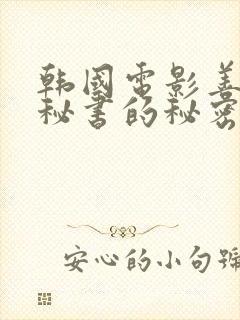 韩国电影善
秘书的秘密
安心的小句號